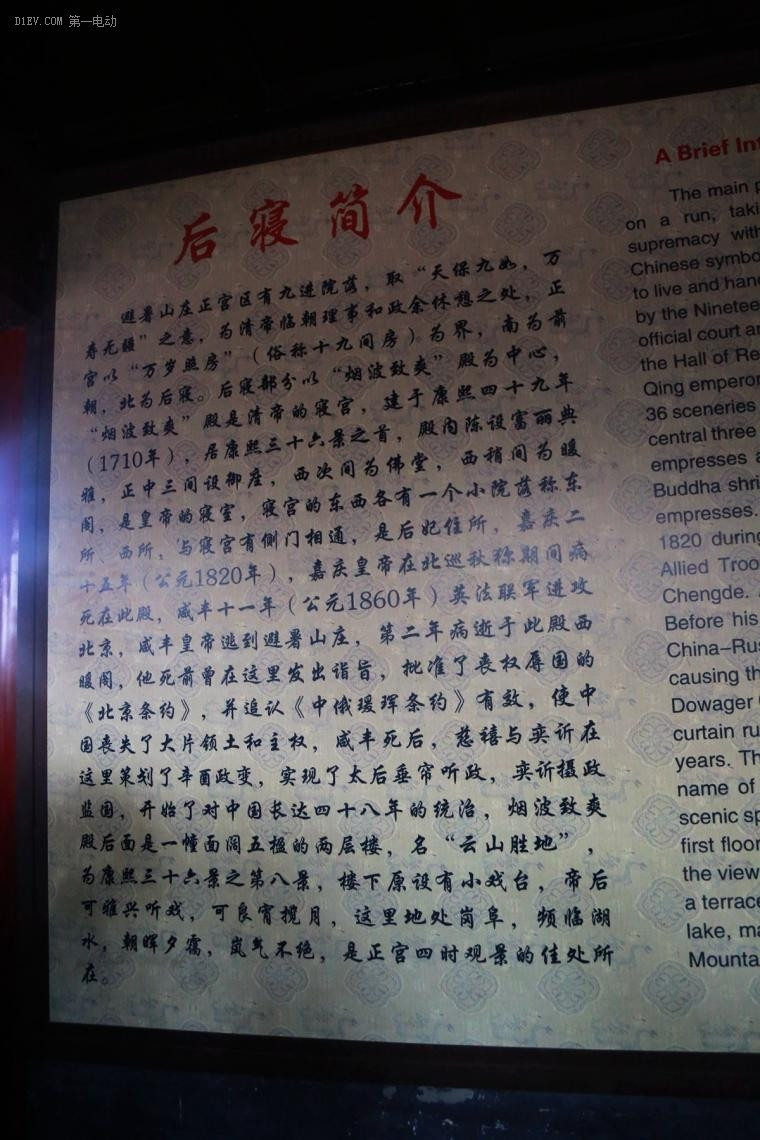 D1EV.COM 第一电动
后寝简介
避暑山庄正宫区有九进院落，取“天保九如，万
寿无疆”之意，为清帝临朝理事和政余休憩之处，正
宫以“万岁照房”（俗称十九间房）为界，南为前
朝，北为后寝。后寝部分以“烟波致爽”殿为中心，
“烟波致爽”殿是清帝的寝宫，建于康熙四十九年
（1710年），居康熙三十六景之首，殿内陈设富丽典
雅，正中三间设御座，西次间为佛堂，西稍间为暖
阁，是皇帝的寝室，寝宫的东西各有一个小院落称东
所、西所，与寝宫有侧门相通，是后妃住所，嘉庆二
十五年（公元1820年），嘉庆皇帝在北巡秋狝期间病
死在此殿，咸丰十一年（公元1860年）英法联军进攻
北京，咸丰皇帝逃到避暑山庄，第二年病逝于此殿西
暖阁，他死前曾在这里发出诣旨，批准了丧权辱国的
《北京条约》，并追认《中俄瑷珲条约》有效，使中
国丧失了大片领土和主权，咸丰死后，慈禧与奕䜣在
这里策划了辛酉政变，实现了太后垂帘听政，奕䜣摄政
监国，开始了对中国长达四十八年的统治，烟波致爽
殿后面是一幢面阔五楹的两层楼，名“云山胜地”，
为康熙三十六景之第八景，楼下原设有小戏台，帝后
可雅兴听戏，可良宵揽月，这里地处岗阜，频临湖
水，朝晖夕霭，岚气不绝，是正宫四时观景的佳处所
在。
A Brief
The main
on a run,
supremacy with
Chinese
to live and
by the
official court
the Hall of
Qing
36 sceneries
central three
empresses
Buddha
empresses.
1820 during
Allied
Chengde.
Before his
causing
Dowager
curtain
years.
name of
scenic
first
the view
a terrace
lake,